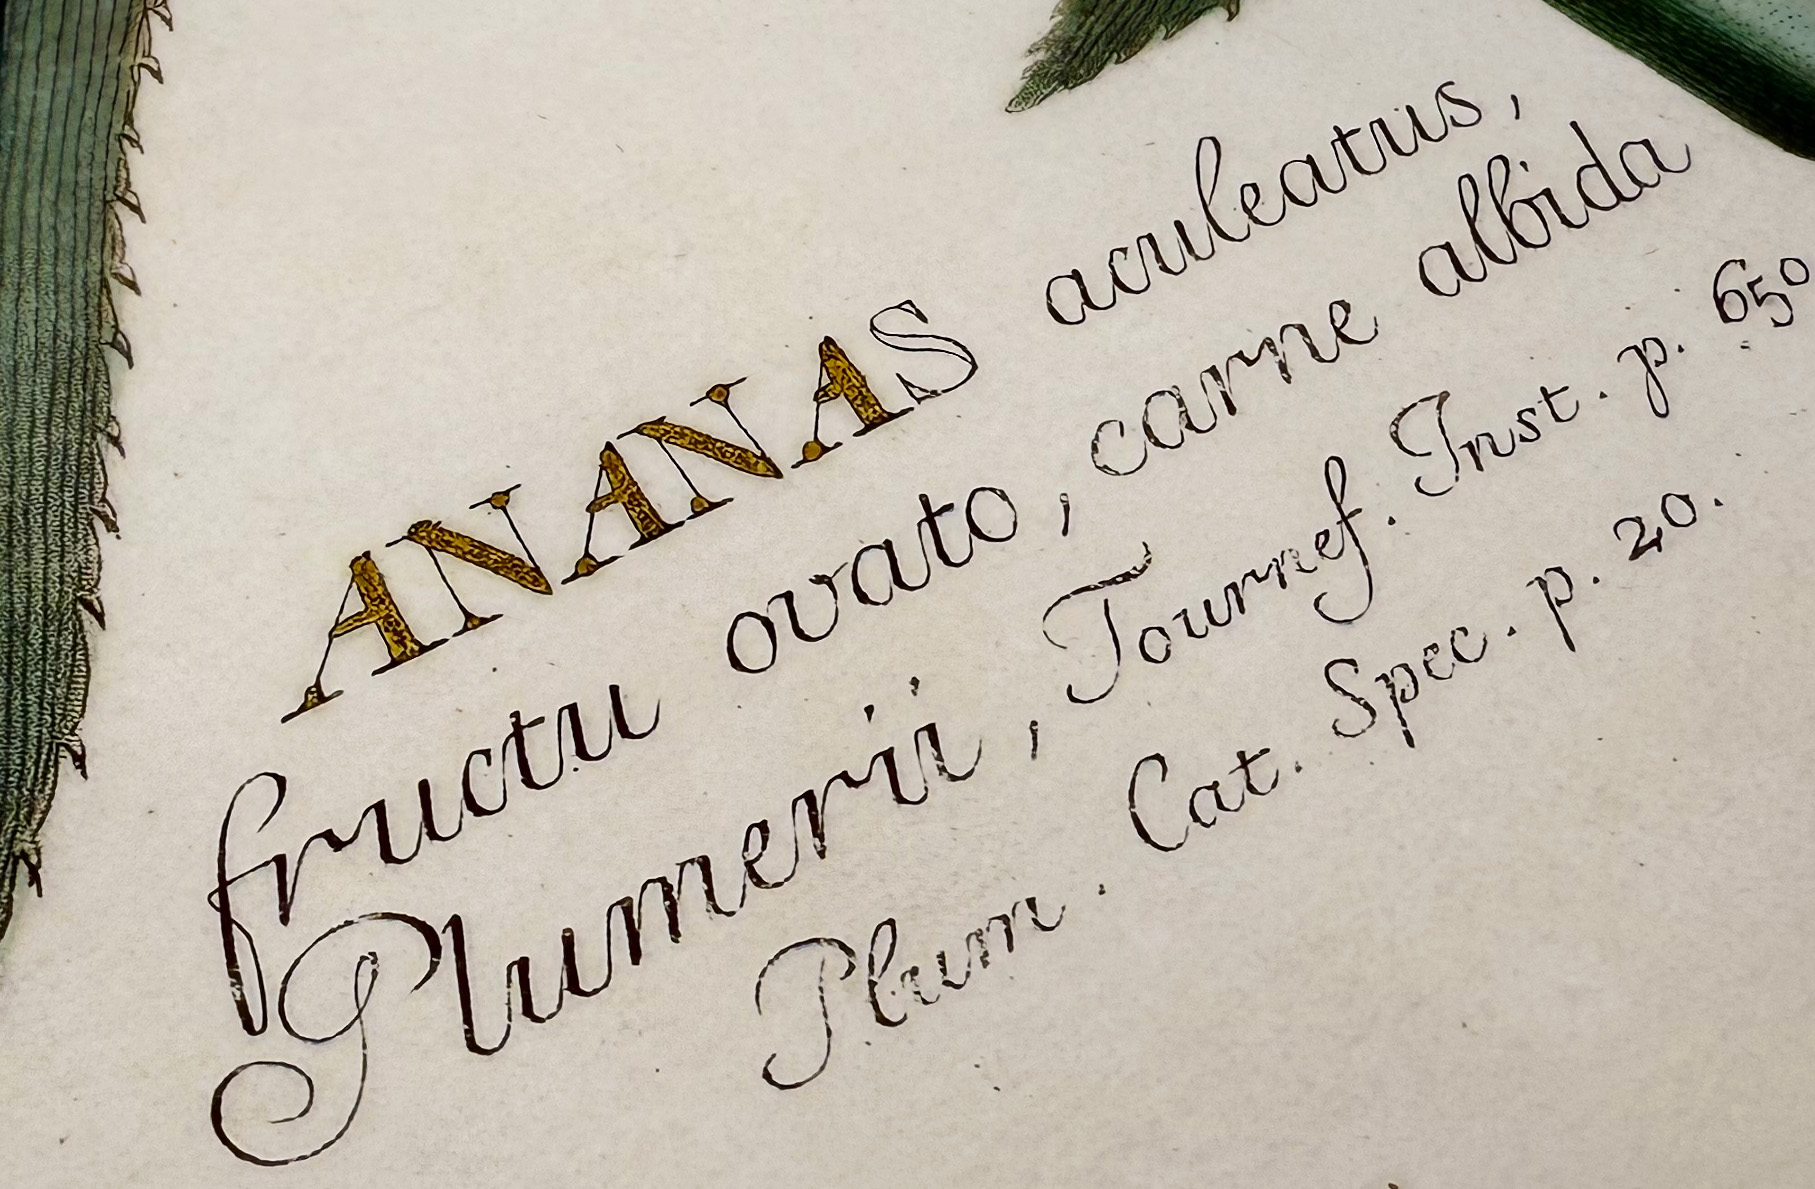 ANANAS aculeatus,
fructu ovato, carne albida
Plumerii, Tournef. Inst. p. 650
Plum. Cat. Spec. p. 20.